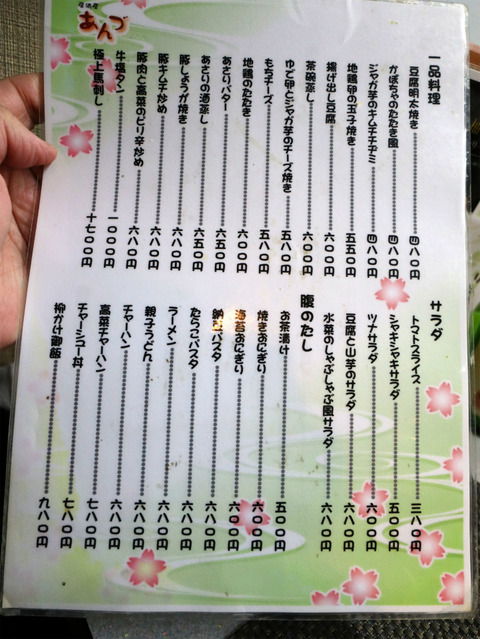 居酒屋
あんづ
一品料理
豆腐明太焼き 四八〇円
かぼちゃのたたき風 四八〇円
ジャガ芋のキムチチヂミ 四八〇円
地鶏卵の玉子焼き 五五〇円
揚げ出し豆腐 六〇〇円
茶碗蒸し 六〇〇円
ゆで卵とジャガ芋のチーズ焼き 五八〇円
もちチーズ 五八〇円
地鶏のたたき 六〇〇円
あさりバター 六五〇円
あさりの酒蒸し 六五〇円
豚しょうが焼き 六八〇円
豚キムチ炒め 六八〇円
豚肉と高菜のピリ辛炒め 六八〇円
牛塩タン 一〇〇〇円
極上馬刺し 十七〇〇円
サラダ
トマトスライス 三八〇円
シャキシャキサラダ 五〇〇円
ツナサラダ 六〇〇円
豆腐と山芋のサラダ 六八〇円
水菜のしゃぶしゃぶ風サラダ 六八〇円
腹のたし
お茶漬け 五〇〇円
焼きおにぎり 六〇〇円
海苔おにぎり 六〇〇円
納豆パスタ 六八〇円
たらこパスタ 六八〇円
ラーメン 六八〇円
親子うどん 六八〇円
チャーハン 六八〇円
高菜チャーハン 七八〇円
チャーシュー丼 七八〇円
柳かけ御飯 九八〇円